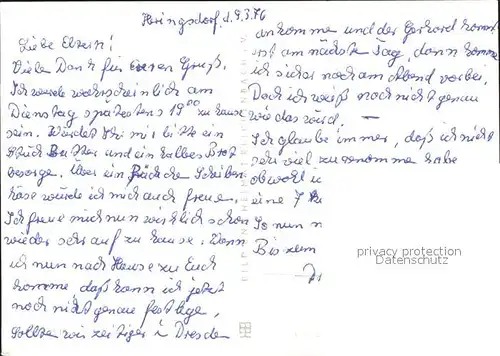 Heringsdorf, d. 9.3.76
Liebe Eltern!
Vielen Dank für euren Gruß.
Ich werde wahrscheinlich am
Dienstag spätestens 19⁰⁰ zu Hause
sein. Würdet Ihr mir bitte ein
Stück Butter und ein halbes Brot
besorgen. Über ein Stückchen Scheiben-
käse würde ich mich auch freuen.
Ich freue mich nun wirklich schon
wieder sehr auf zu Hause. Wann
ich nun nach Hause zu Euch
komme, daß kann ich jetzt
noch nicht genau festlegen,
sollten wir zeitiger in Dresden
ankomme und der Gerhard kommt
erst am nächsten Tag, dann komme
ich sicher noch am Abend vorbei.
Doch ich weiß noch nicht genau
wie das wird. —
Ich glaube immer, daß ich nicht
sehr viel zugenommen habe
obwohl i
eine 7
So nun n
Bis zum
privacy protection
Datenschutz